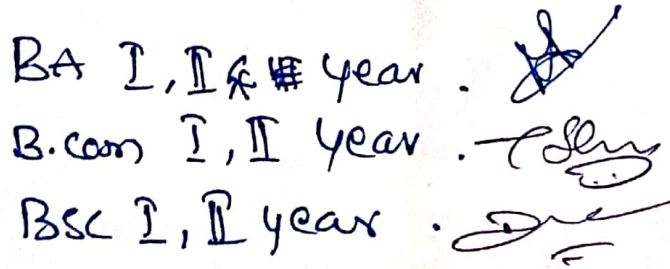 BA I, II & year.
B.com I, II year.
BSC I, II year.